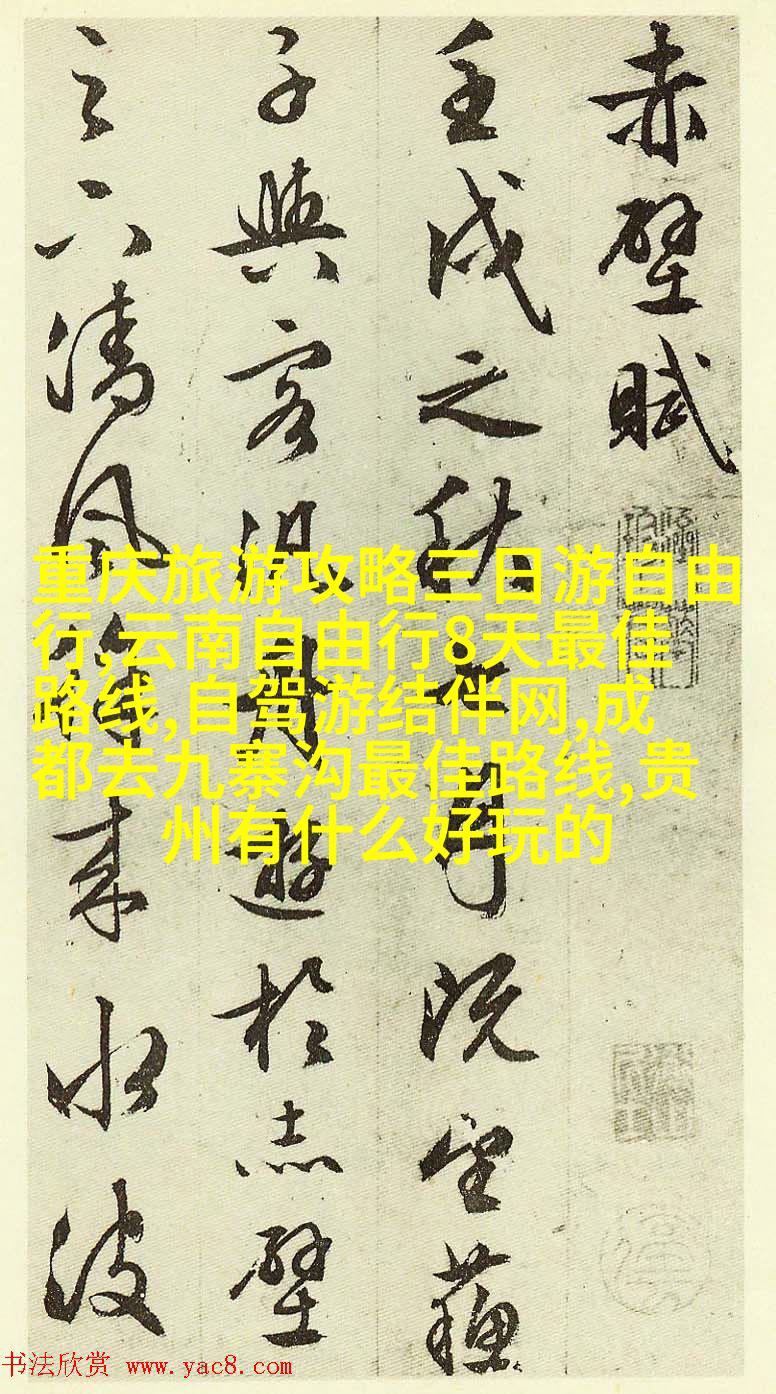 赤壁賦
壬戌之秋七月既望蘓
子與客泛舟遊於赤壁
之下清風徐來水波
重庆旅游攻略三日游自由
行,云南自由行8天最佳
路线,自驾游结伴网,成
都去九寨沟最佳路线,贵
州有什么好玩的
书法欣赏 www.yac8.com